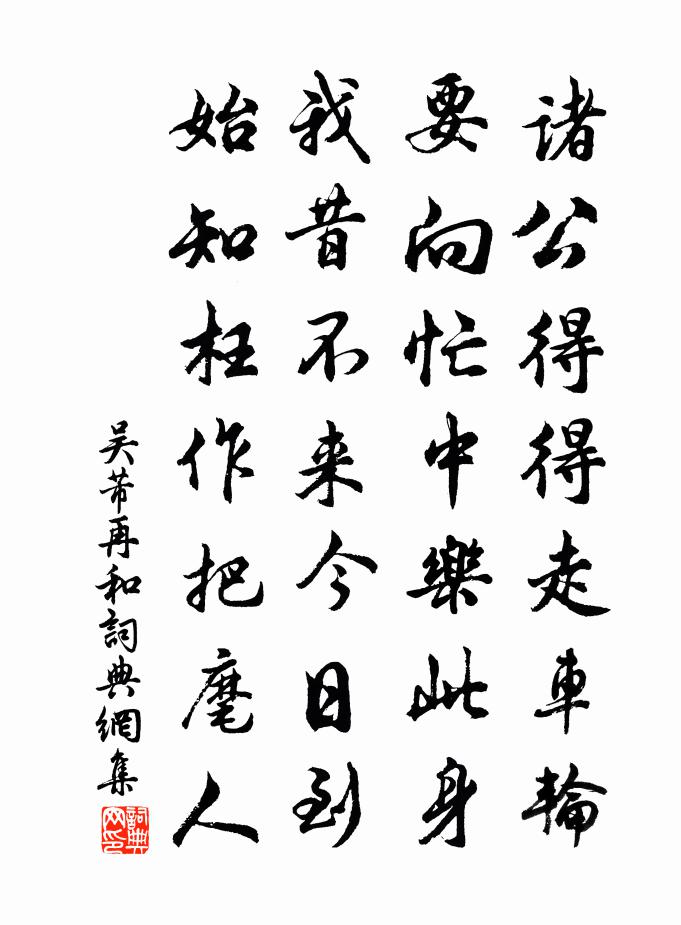 诸公得得走車輪
要向忙中樂此身
我昔不来今日到
始知枉作把麾人
吴芾再和詞典網集
詞典网印